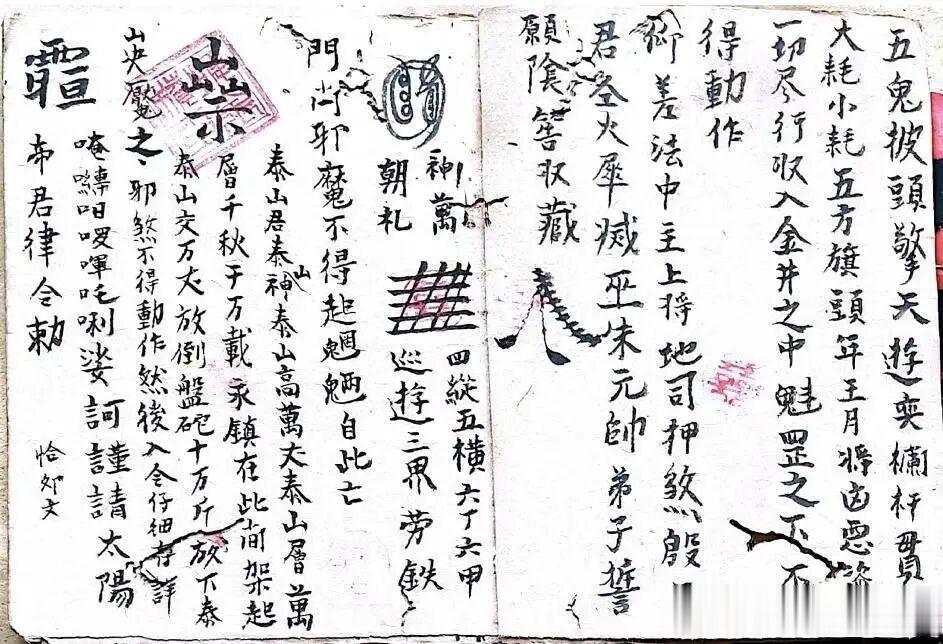 五鬼披頭擎天遊奕欄杆貫
大耗小耗五方旗頭年王月將凶惡
一切尽行収入金井之中魁罡之下不
得動作
御差法中主上将地司押煞殷
君火犀滅巫朱元帥弟子誓
願陰收藏
神萬 四縱五橫六丁六甲
朝礼 巡遊三界劳鉄
門尚邪魔不得起魍魎自此亡
泰山君泰山神泰山高萬丈泰山層萬
層千秋千万載永鎮在此间架起
泰山交万丈放倒盤砣十万斤放下泰
山央魘之之邪煞不得動作然後入令仔細存詳
唵嚩呾㖿喗吒唎娑訶謹請太陽
帝君律令勅
恰郊文